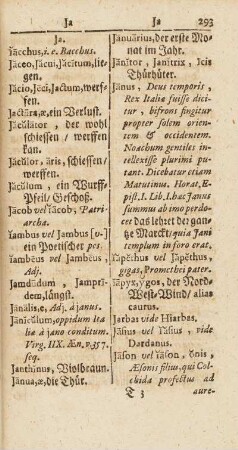 Ja Ja 293
Ja.
Jăcchus, i. e. Bacchus.
Jăceo, Jăcui, Jăcĭtum, lie-
gen.
Jăcio, Jēci, Jactum, werf-
fen.
Jactūra, æ, ein Verlust.
Jăcŭlātor, der wohl
schiessen / werffen
kan.
Jăcŭlor, āris, schiessen/
werffen.
Jăcŭlum, ein Wurff-
Pfeil/ Geschoß.
Jăcob vel ĭăcob, Patri-
archa.
ĭambus vel Jambus [o-]
ein Poetischer pes.
ĭambēus vel Jambēus,
Adj.
Jamdūdum, Jamprī-
dem, längst.
Jānālis, e, Adj. à janus.
Jānĭcŭlum, oppidum Ita-
liæ à jano conditum.
Virg. IIX. Æn. v. 357.
seq.
Janthĭnus, Violbraun.
Jānua, æ, die Thür.
Januārius, der erste Mo-
nat im Jahr.
Jānĭtor, Janĭtrix, īcis
Thürhüter.
Jānus, Deus temporis,
Rex Italiæ fuisse dici-
tur, bifrons fingitur
propter ortum orientem
& occidentem.
Noachum gentiles in-
tellexisse plurimi pu-
tant. Dicebatur etiam
Matutinus. Horat, E-
pist. I. Lib. I. hac Janus
summus ab imo perdo-
cet das lehret der gan-
tze Marckt; quia Jani
templum in foro erat.
ĭāpĕtus vel Jāpĕthus,
gigas, Promethei pater.
ĭāpyx, ygos, der Nord-
West-Wind/ alias
caurus.
Jarbas vide Hiarbas.
Jăsius vel ĭăsius, vide
Dardanus.
Jāson vel ĭāson, ŏnis,
Æsonis filius, qui Col-
chida profectus ad
T 3 aure-